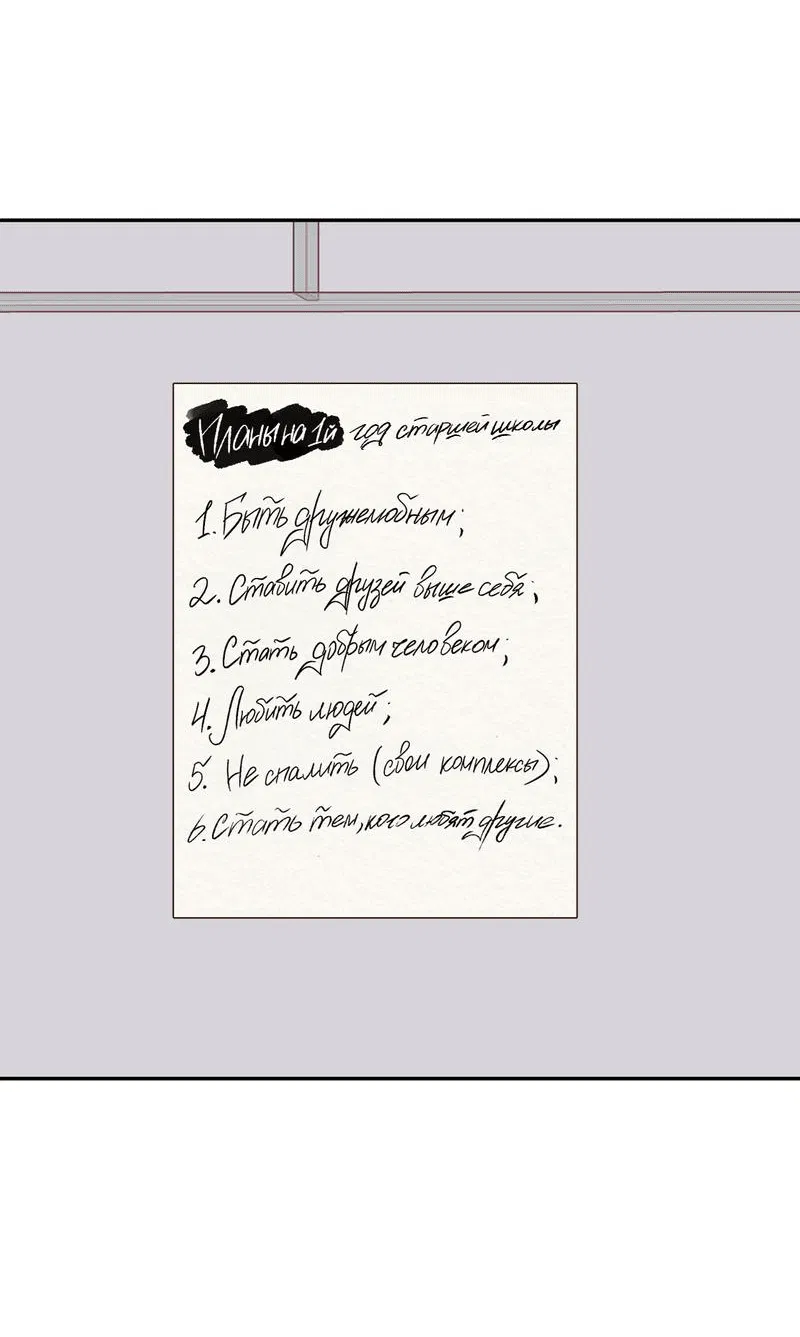 Планы на 1й год старшей школы
1. Быть дружелюбным;
2. Ставить друзей выше себя;
3. Стать добрым человеком;
4. Любить людей;
5. Не спалить (свои комплексы);
6. Стать тем, кого любят другие.